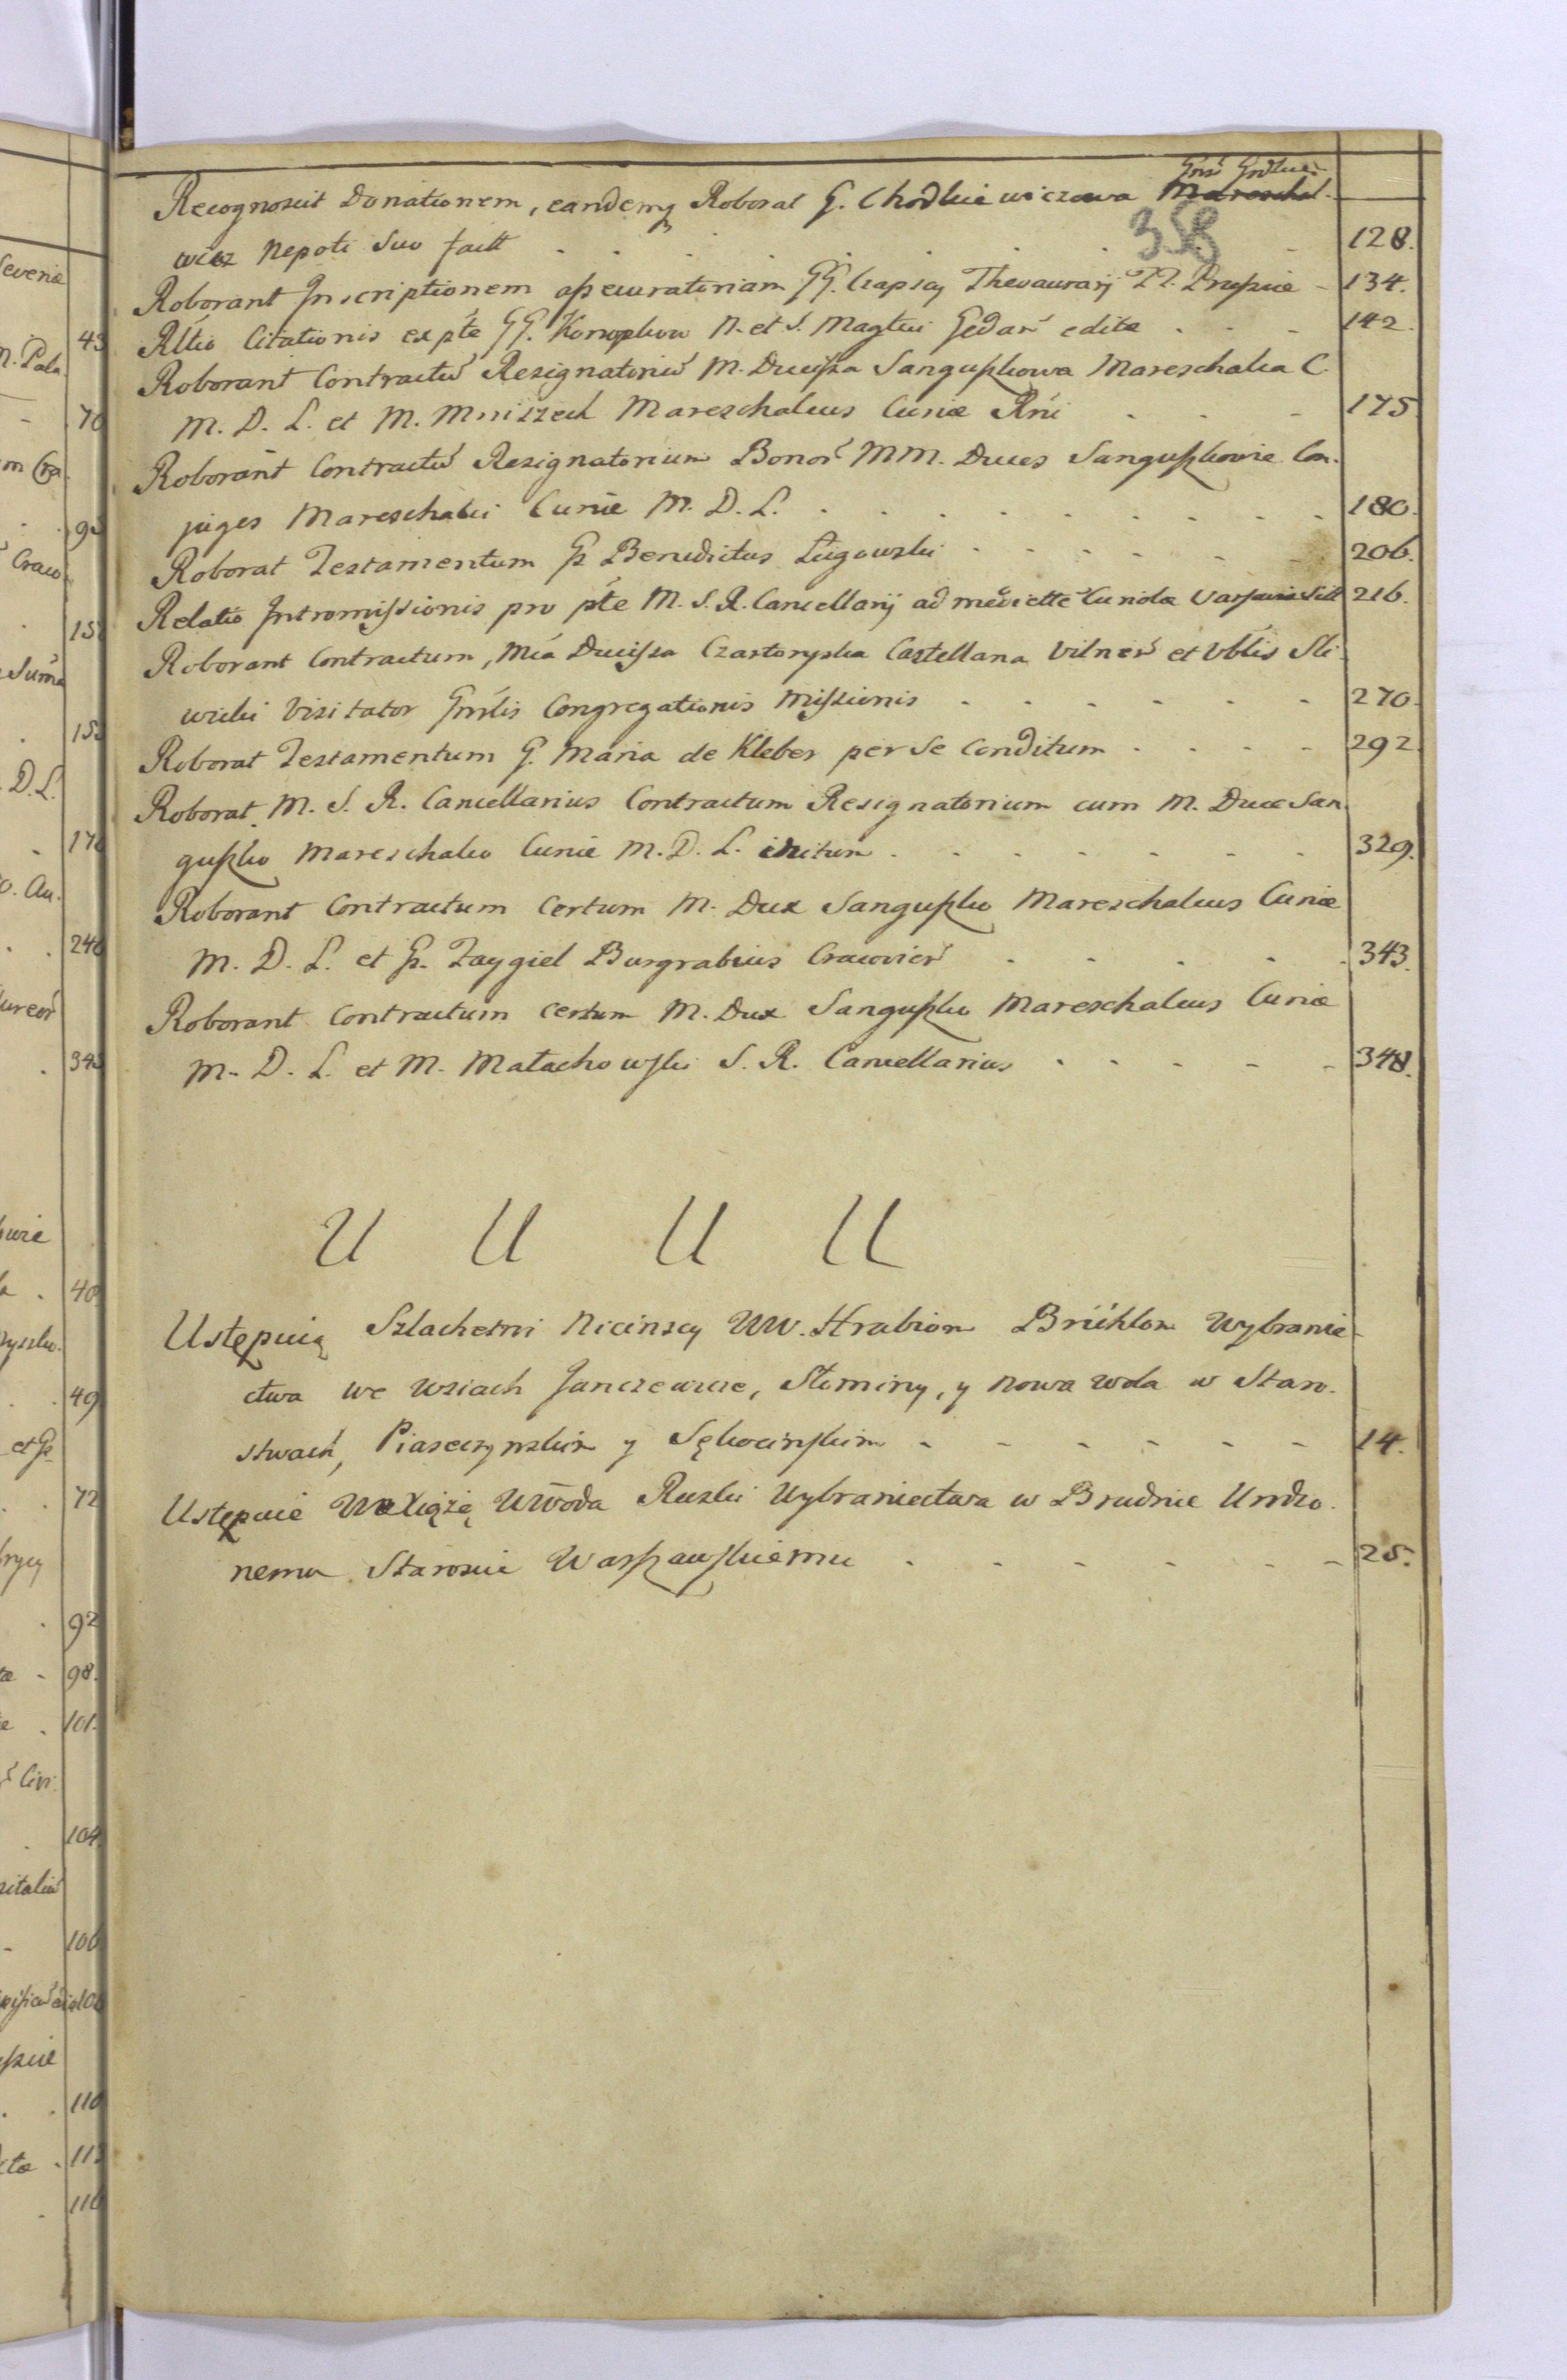 Recognoscit Donationem, eandemq Roborat G. Chodkiewiczowa Mareschal.
358
wicz Nepoti Suo factt 128.
Roborant Inscriptionem assecuratoriam GG. Czapscy Thesaurarij TT. Prussiæ 134.
Rltio Citationis ex pte GG. Konopkow N. et S. Magtui Gedań edita 142.
Roborant Contractū Resignatoriū M. Ducissa Sanguszkowa Mareschalca C.
M. D. L. et M. Mniszech Mareschalcus Curiæ Rni 175.
Roborant Contractū Resignatorium Bonor MM. Duces Sanguszkowie Con.
juges Mareschalci Curiæ M. D. L. 180.
Roborat Testamentum G. Benedictus Ługowski 206.
Relatio Intromissionis pro pte M. S. R. Cancellarij ad mediette Curiolæ Varsaviæ Sitt 216.
Roborant Contractum, Mca Ducissa Czartoryska Castellana Vilneń et Vblis Sli
wicki Visitator Gnrlis Congregationis Missionis 270.
Roborat Testamentum G. Maria de Kleber per Se Conditum 292.
Roborat M. S. R. Cancellarius Contractum Resignatorium cum M. Duce San.
guszko Mareschalco Curiæ M. D. L. initum 329.
Roborant Contractum Certum M. Dux Sanguszko Mareschalcus Curiæ
M. D. L. et G. Zaygiel Burgrabius Cracovień 343.
Roborant Contractum Certum M. Dux Sanguszko Mareschalcus Curiæ
M. D. L. et M. Małachowski S. R. Cancellarius 348.
U U U U
Ustępuią Szlachetni Nicinscy UW. Hrabiom Brühlom Wybranie
ctwa we wsiach Janczewice, Słominy, y Nowa Wola w Staro.
stwach, Piaseczynskim y Sękocinskim 14.
Ustępuie Xiążę UWoda Ruski Wybraniectwa w Brudnie Urodzo.
nemu Staroscie Warszawskiemu 25.